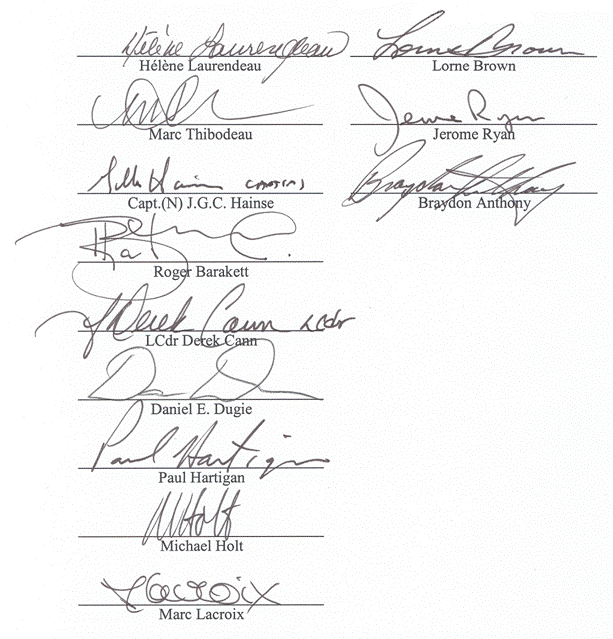 Hélène Laurendeau
Hélène Laurendeau
Marc Thibodeau
Hainse
Capt.(N) J.G.C. Hainse
Roger Barakett
Derek Cann LCdr
LCdr Derek Cann
Daniel E. Dugie
Paul Hartigan
Paul Hartigan
M Holt
Michael Holt
Lacroix
Marc Lacroix
Lorne Brown
Lorne Brown
Jerome Ryan
Jerome Ryan
Braydon Anthony
Braydon Anthony